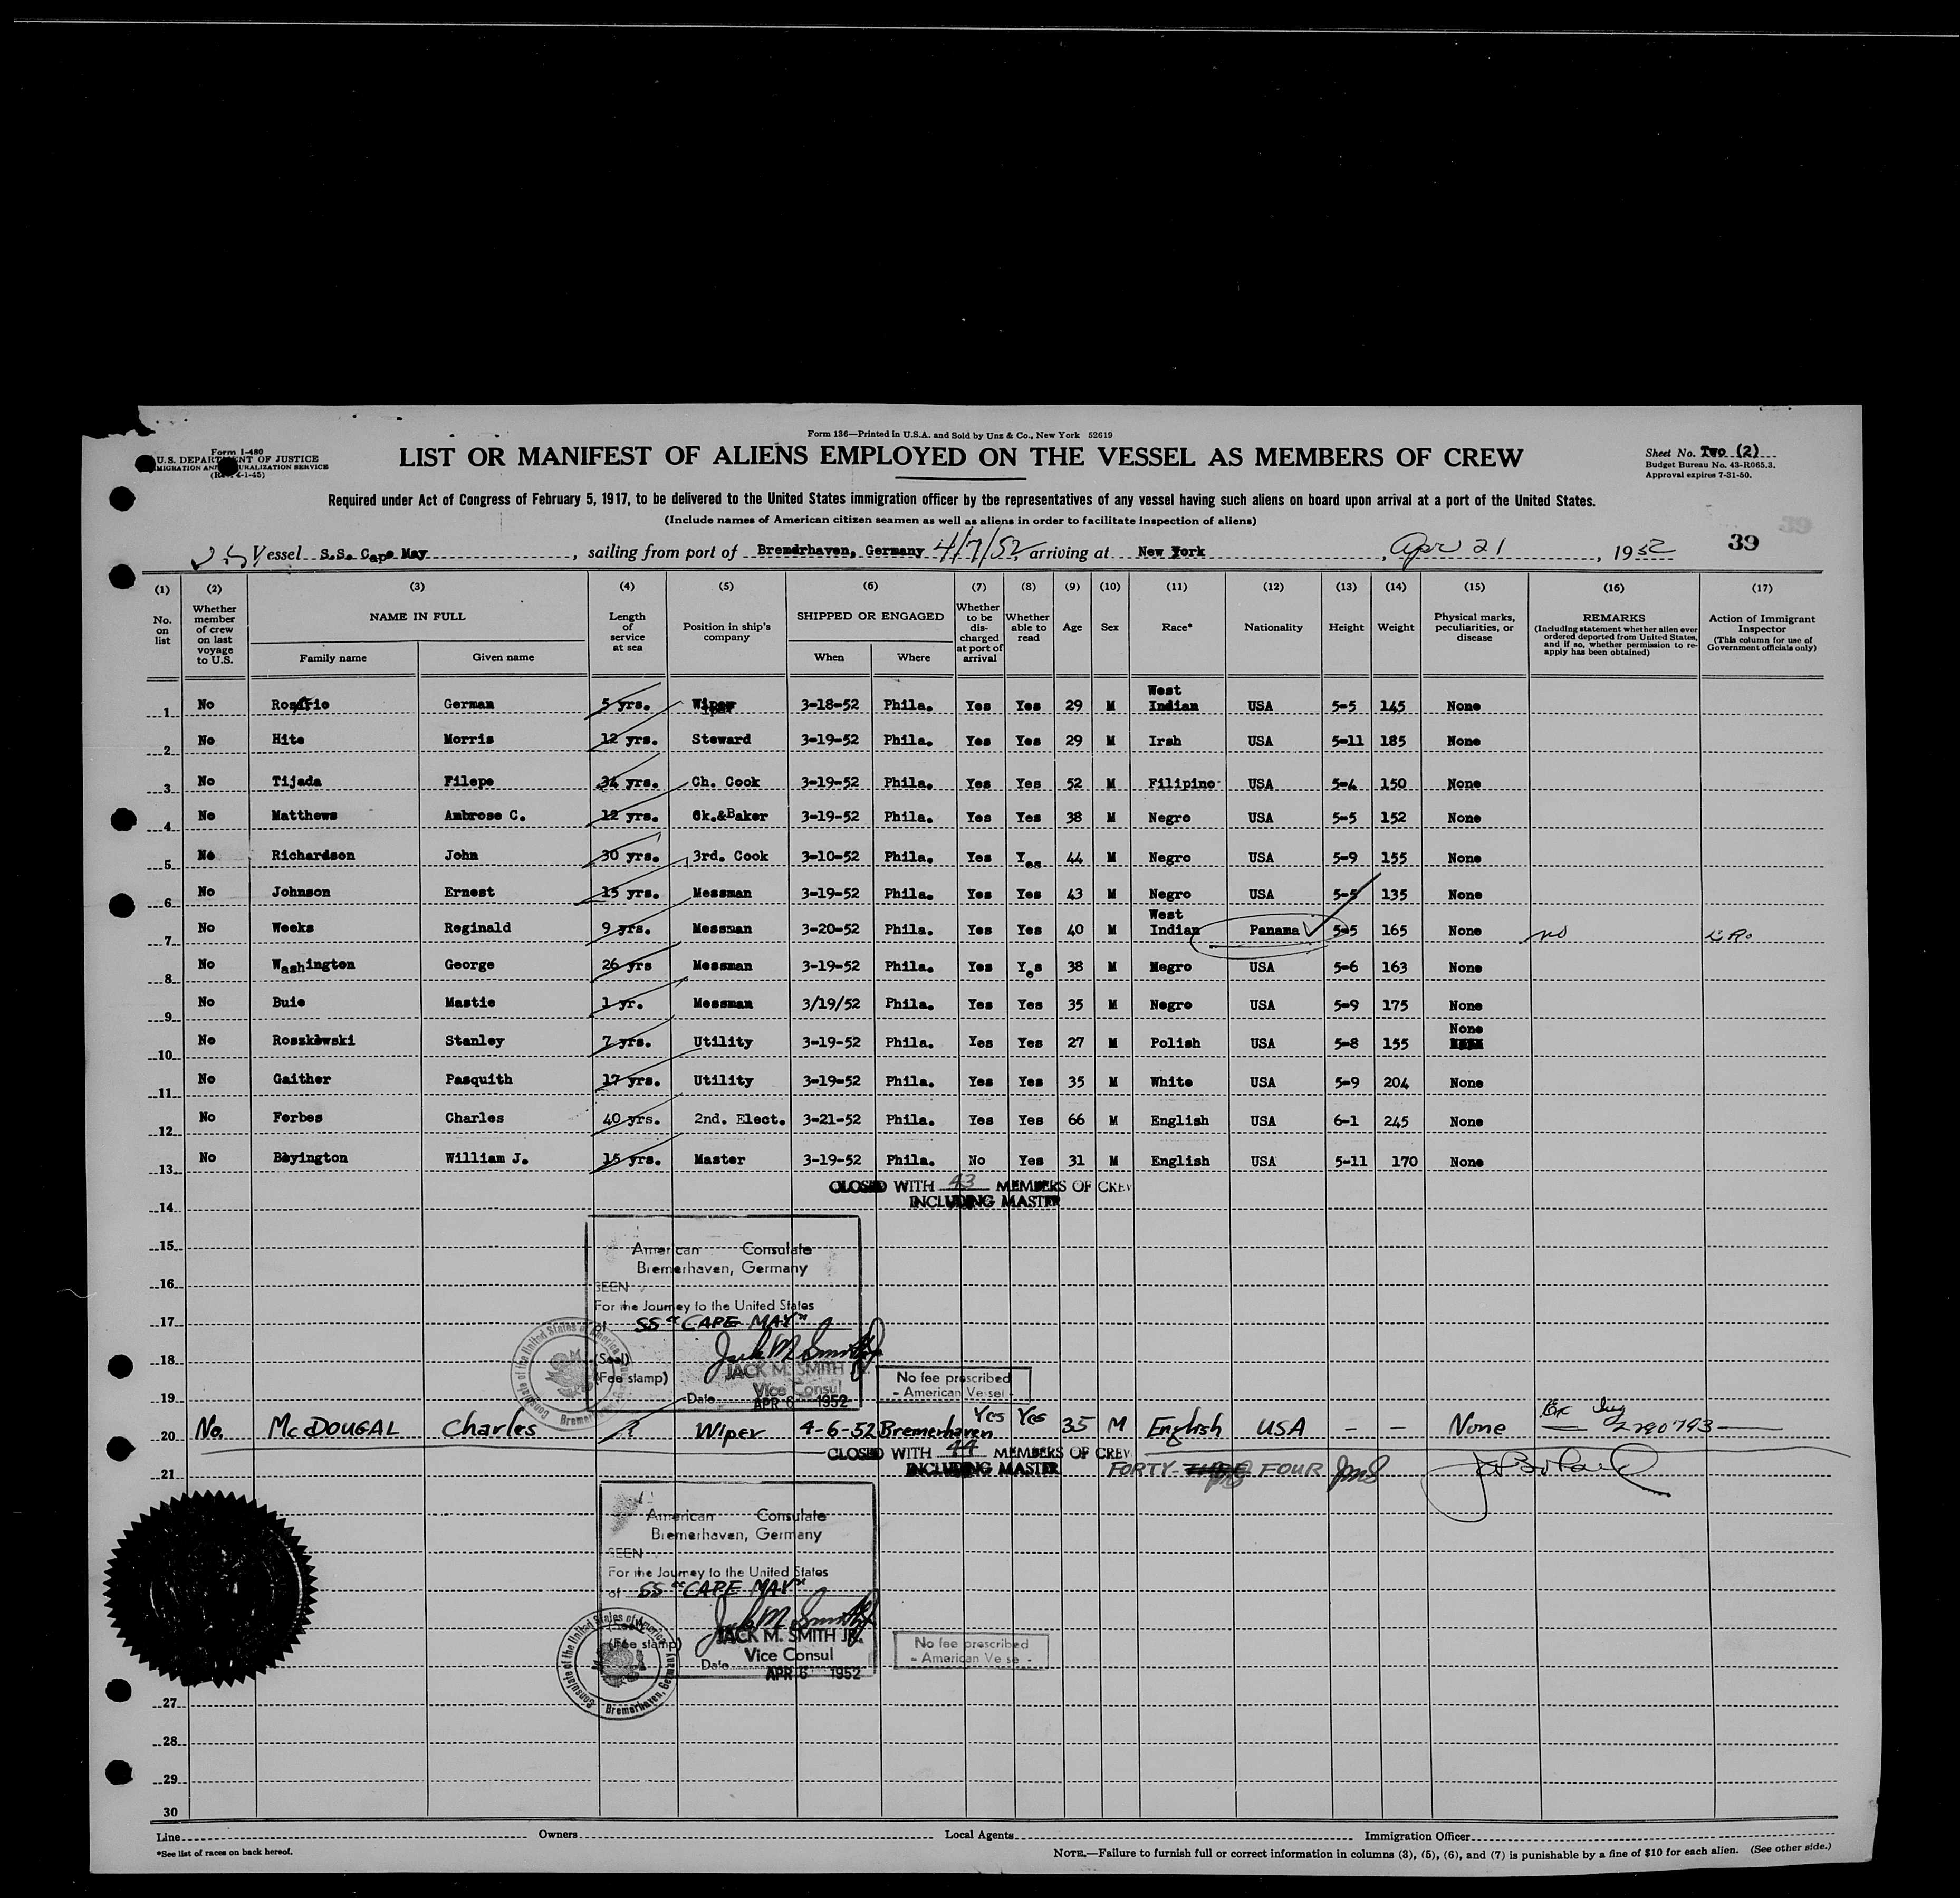 Form 136—Printed in U.S.A. and Sold by Unz & Co., New York 52619
Form I-480
U.S. DEPARTMENT OF JUSTICE
IMMIGRATION AND NATURALIZATION SERVICE
(Rev. 4-1-45)
LIST OR MANIFEST OF ALIENS EMPLOYED ON THE VESSEL AS MEMBERS OF CREW
Sheet No. Two (2)
Budget Bureau No. 43-R065.3.
Approval expires 7-31-50.
Required under Act of Congress of February 5, 1917, to be delivered to the United States immigration officer by the representatives of any vessel having such aliens on board upon arrival at a port of the United States.
(Include names of American citizen seamen as well as aliens in order to facilitate inspection of aliens)
39
Vessel S.S. Cape May, sailing from port of Bremerhaven, Germany 4/7/52, arriving at New York, Apr 21, 1952 39
(1) (2) (3) (4) (5) (6) (7) (8) (9) (10) (11) (12) (13) (14) (15) (16) (17)
No. on list
Whether member of crew on last voyage to U.S.
NAME IN FULL
Family name
Given name
Length of service at sea
Position in ship's company
SHIPPED OR ENGAGED
When
Where
Whether to be discharged at port of arrival
Whether able to read
Age
Sex
Race*
Nationality
Height
Weight
Physical marks, peculiarities, or disease
REMARKS
(Including statement whether alien ever ordered deported from United States, and if so, whether permission to reapply has been obtained)
Action of Immigrant Inspector
(This column for use of Government officials only)
1 No Rosario German 5 yrs. Wiper 3-18-52 Phila. Yes Yes 29 M West Indian USA 5-5 145 None
2 No Hite Morris 12 yrs. Steward 3-19-52 Phila. Yes Yes 29 M Irsh USA 5-11 185 None
3 No Tijada Filepe 34 yrs. Ch. Cook 3-19-52 Phila. Yes Yes 52 M Filipino USA 5-4 150 None
4 No Matthews Ambrose C. 12 yrs. Ck.&Baker 3-19-52 Phila. Yes Yes 38 M Negro USA 5-5 152 None
5 No Richardson John 30 yrs. 3rd. Cook 3-10-52 Phila. Yes Yes 44 M Negro USA 5-9 155 None
6 No Johnson Ernest 15 yrs. Messman 3-19-52 Phila. Yes Yes 43 M Negro USA 5-5 135 None
7 No Weeks Reginald 9 yrs. Messman 3-20-52 Phila. Yes Yes 40 M West Indian Panama 5-5 165 None no
8 No Washington George 26 yrs Messman 3-19-52 Phila. Yes Yes 38 M Negro USA 5-6 163 None
9 No Buie Mastie 1 yr. Messman 3/19/52 Phila. Yes Yes 35 M Negro USA 5-9 175 None
10 No Roszkowski Stanley 7 yrs. Utility 3-19-52 Phila. Yes Yes 27 M Polish USA 5-8 155 None
11 No Gaither Pasquith 17 yrs. Utility 3-19-52 Phila. Yes Yes 35 M White USA 5-9 204 None
12 No Forbes Charles 40 yrs. 2nd. Elect. 3-21-52 Phila. Yes Yes 66 M English USA 6-1 245 None
13 No Boyington William J. 15 yrs. Master 3-19-52 Phila. No Yes 31 M English USA 5-11 170 None
CLOSED WITH 43 MEMBERS OF CREW
INCLUDING MASTER
14
15
16
17
18
19
American Consulate
Bremerhaven, Germany
SEEN
For the Journey to the United States
of SS "CAPE MAY"
Jack M. Smith Jr.
(Seal)
JACK M. SMITH JR.
(Fee stamp)
Vice Consul
Date APR 6 1952
Consulate of the United States of America Bremerhaven, Germany
No fee prescribed
- American Vessel -
20 No. McDOUGAL Charles ? Wiper 4-6-52 Bremerhaven Yes Yes 35 M English USA - - None 2290793
CLOSED WITH 44 MEMBERS OF CREW
INCLUDING MASTER FORTY FOUR JMS
21
American Consulate
Bremerhaven, Germany
SEEN
For the Journey to the United States
of SS "CAPE MAY"
Jack M. Smith Jr.
(Fee stamp)
JACK M. SMITH JR.
Vice Consul
Date APR 6 1952
Consulate of the United States of America Bremerhaven, Germany
No fee prescribed
- American Vessel -
27
28
29
30
Line Owners Local Agents Immigration Officer
*See list of races on back hereof.
NOTE.—Failure to furnish full or correct information in columns (3), (5), (6), and (7) is punishable by a fine of $10 for each alien. (See other side.)